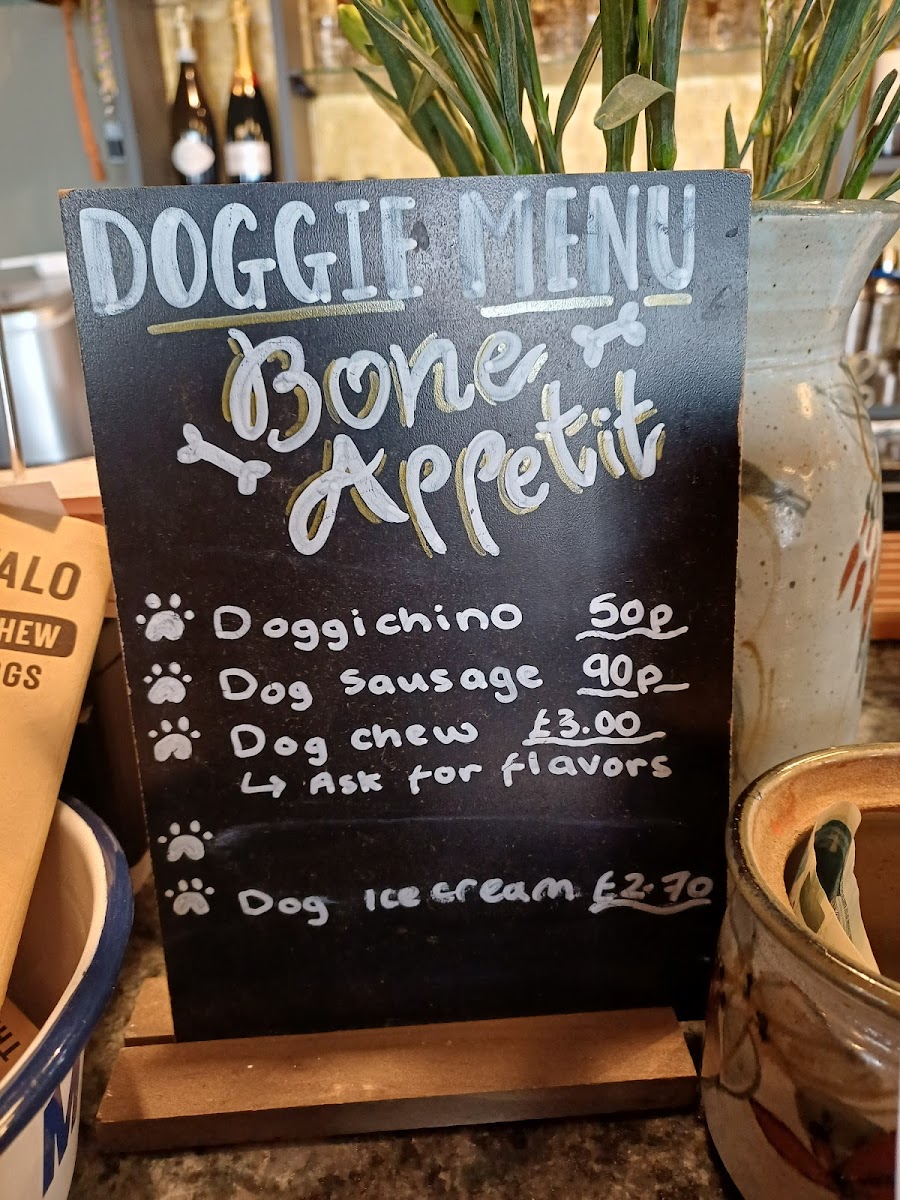 DOGGIE MENU
Bone
Appetit
Doggichino 50p
Dog sausage 90p
Dog chew £3.00
↳ Ask for flavors
Dog Ice cream £2.70
ALO
HEW
GS